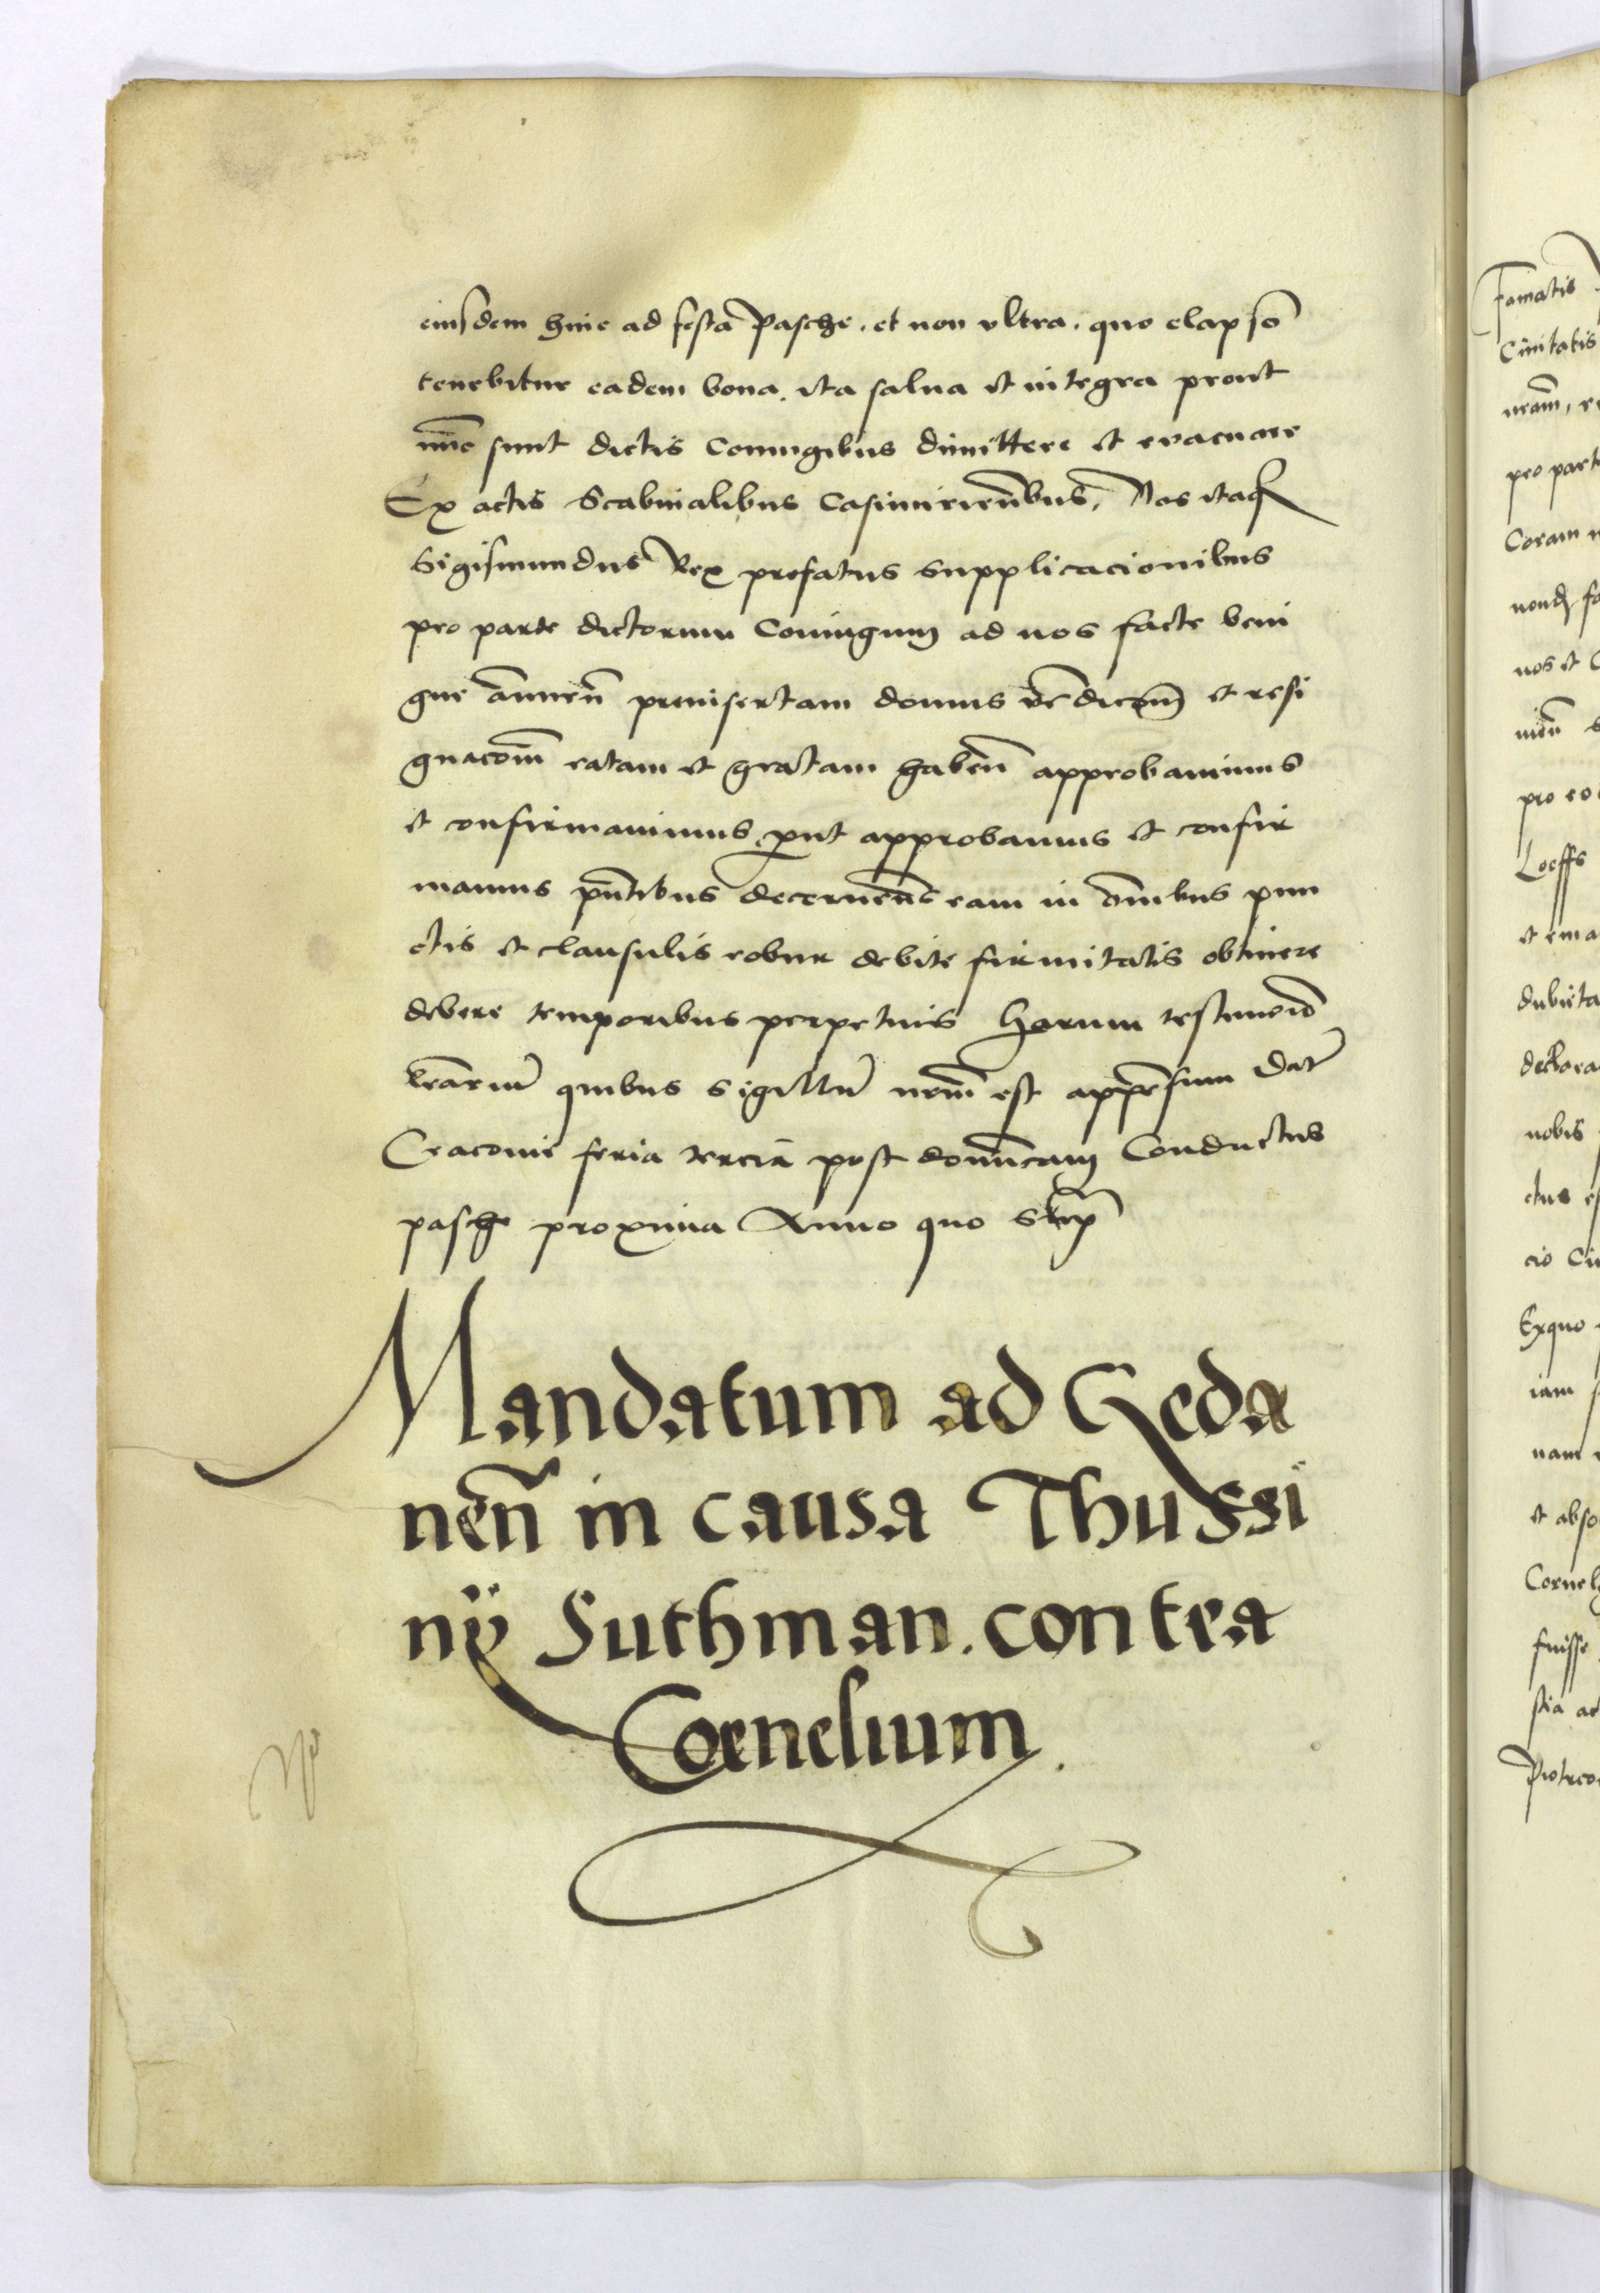 eiusdem hinc ad festa Pasche. et non vltra. quo elapso
tenebitur eadem bona. ita salua et integra prout
nūc sunt dictis Coniugibus dimittere et evacuare
Ex actis Scabinalibus Casimirieñbus, Nos itaq
Sigismundus Rex prefatus supplicacionibus
pro parte dictorum Coniugum ad nos facte beni
gne annueñ preinsertam domus vēdicōm et resi
gnacōm ratam et gratam habeñ approbauimus
et confirmauimus, put approbamus et confir
mamus pñtibus decerneñ eam in oīnibus pun
ctis et clausulis robur debite firmitatis obtinere
debere temporibus perpetuis Harum testimonio
lrārum quibus sigillū nrm̄ est appensum Dat
Cracouie feria tercia post domīcam Conductus
pasche proxima Anno quo Sup
Mandatum ad Geda
neñ in causa Thussi
nÿ Suthman. contra
Cornelium.
Famatis
Ciuitatis
nram,
pro parte
Coram
nos et
pro eo
Loeffs
et ema
dubita
nobis
ctus
cio Ciu
Exquo
iam
nam
et abso
Corneli
fuisse
Piotrco